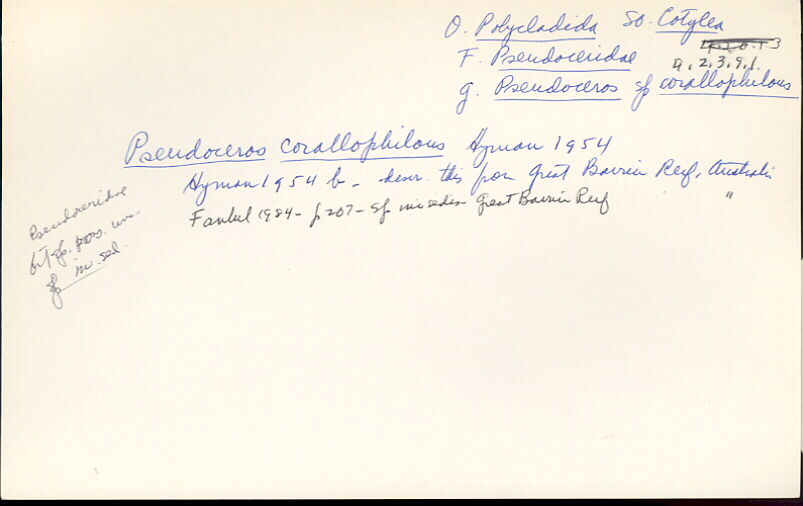 O. Polycladida SO. Cotylea
F. Pseudoceridae
4.2.3.9.1.
g. Pseudoceros sp corallophilous
Pseudoceros corallophilous Hyman 1954
Hyman 1954 b - descr. this from Great Barrier Reef, Australia
Faubel 1984 - p 207 - sp in sedis Great Barrier Reef "
Pseudoceridae
but sp. poss. un-
sp in. sed.